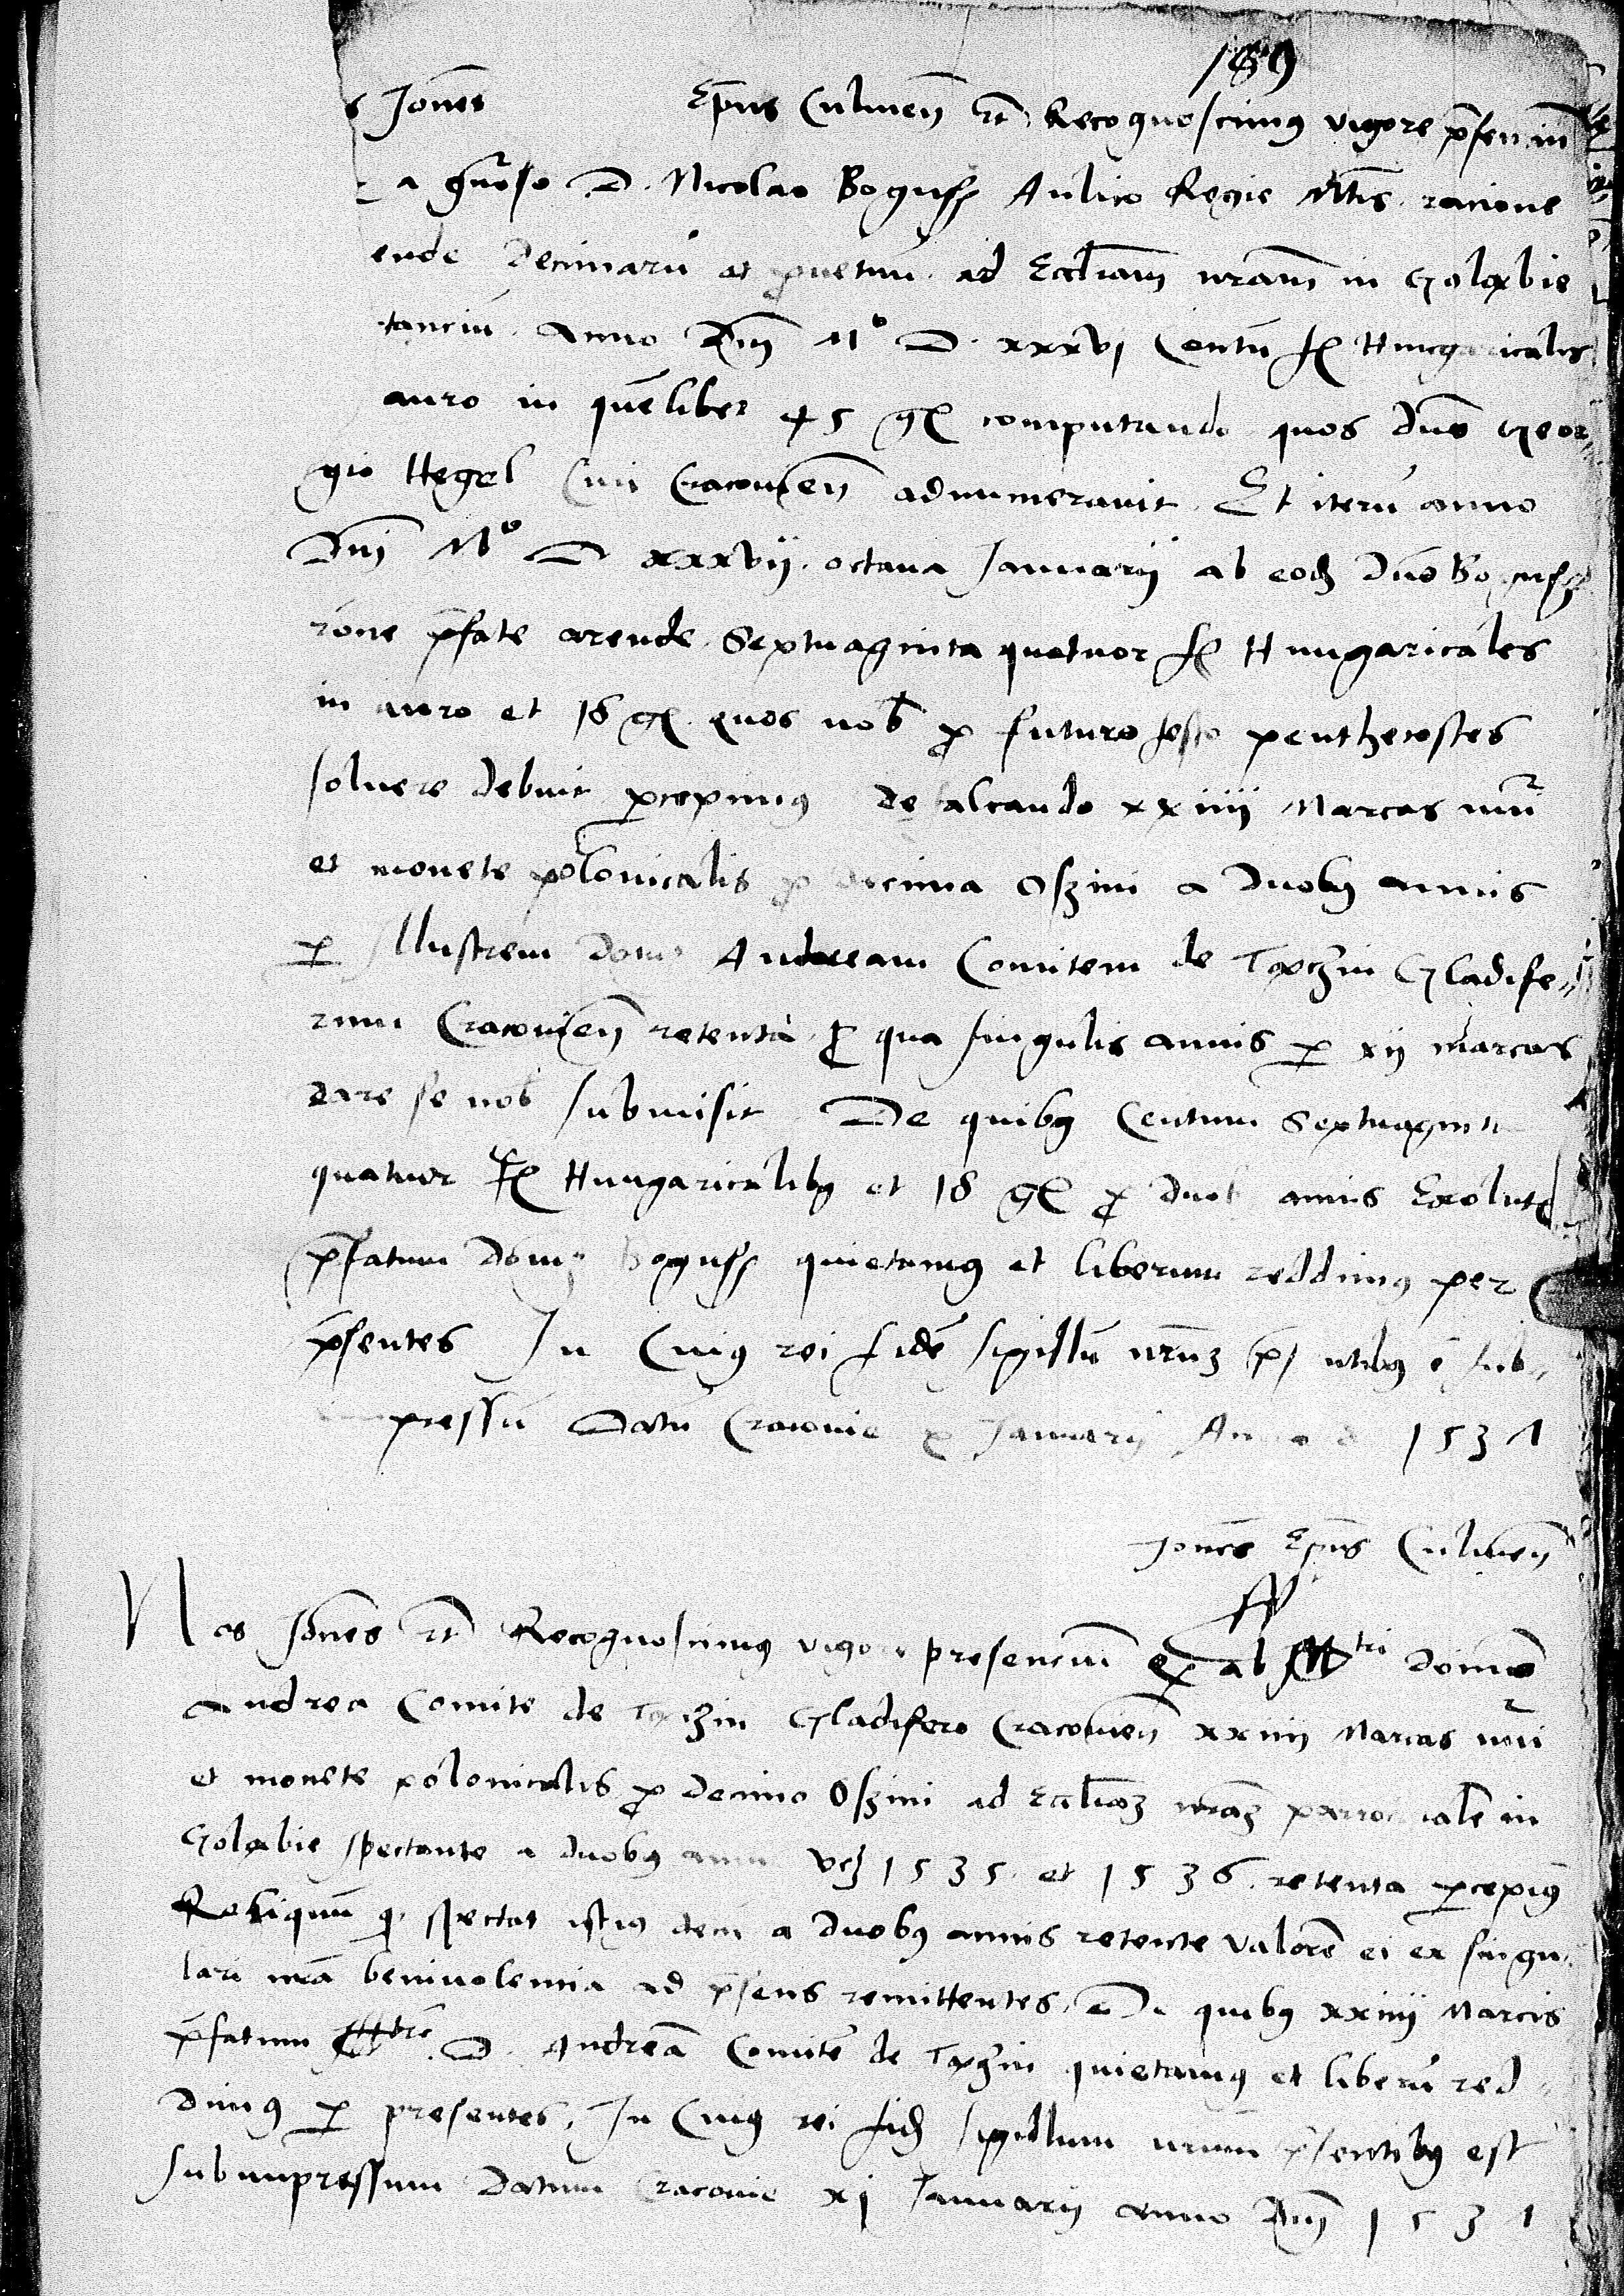 189
s Joañes Epūs Culmeñ etc Recognoscimus vigore p̄sentiū
a gn̄oso D. Nicolao Boguss Aulico Regie Mtis. racione
ende Decimarū et proventuū ad Eccl̄iam nr̄am in Goląbie
tanciū. Anno Dn̄i Mº D. xxxvj Centū fl Hungaricalis
auro in quēlibet 45 gr computando quos dno Geor„
gio Hegel Civi Cracovieñ adnumeravit. Et iterū anno
Dn̄i Mº D xxxvij. octava Januarij ab eodē Dn̄o Boguss
rōne p̄fate arende. Septuaginta quatuor fl Hungaricales
in auro et 18 gr. quos nob pro futuro festo penthecostes
solvere debuit percepimus defalcando xxiiii Marcas nūi
et monete polonicalis pro decima Oszini a duobus annis
per Illustrem Dom Andream Comitem de Tęczin Gladife„
rum Cracovieñ retenta pro qua singulis annis per xij marcas
dare se nob submisit. De quibus Centum Septuaginta
quatuor fl Hungaricalibus et 18 gr pro duob annis Exolut
p̄fatum Dom Boguss quietamus et liberum reddimus per
p̄sentes In Cuius rei fidē sigillū nr̄um p̄sentibus ē sub„
impressū Datū Cracovie x Januarij Anno d 1537
Joañes Epūs Culmeñ
Nos Joañes etc Recognoscimus vigore presenciū ab Illtri domino
Andrea Comite de Tęczin Gladifero Cracovieñ xxiiii Marcas nūi
et monete polonicalis pro decima Oszini ad Eccl̄iam nr̄am parrochialē in
Goląbie spectante a duobus annis vcz 1535. et 1536. retenta percepimus
Reliquum quod spectat istius decī a duobus annis retente valorē ei ex singu„
lari nr̄a benivolentia ad p̄sens remittentes, De quibus xxiiii Marcis
p̄fatum Illtrē D. Andreā Comitē de Tęczin quietamus et liberū red„
dimus per presentes. In Cuius rei fidē sigillum nr̄um p̄sentibus est
subimpressum Datum Cracovie xj Januarij anno Dn̄i 1537